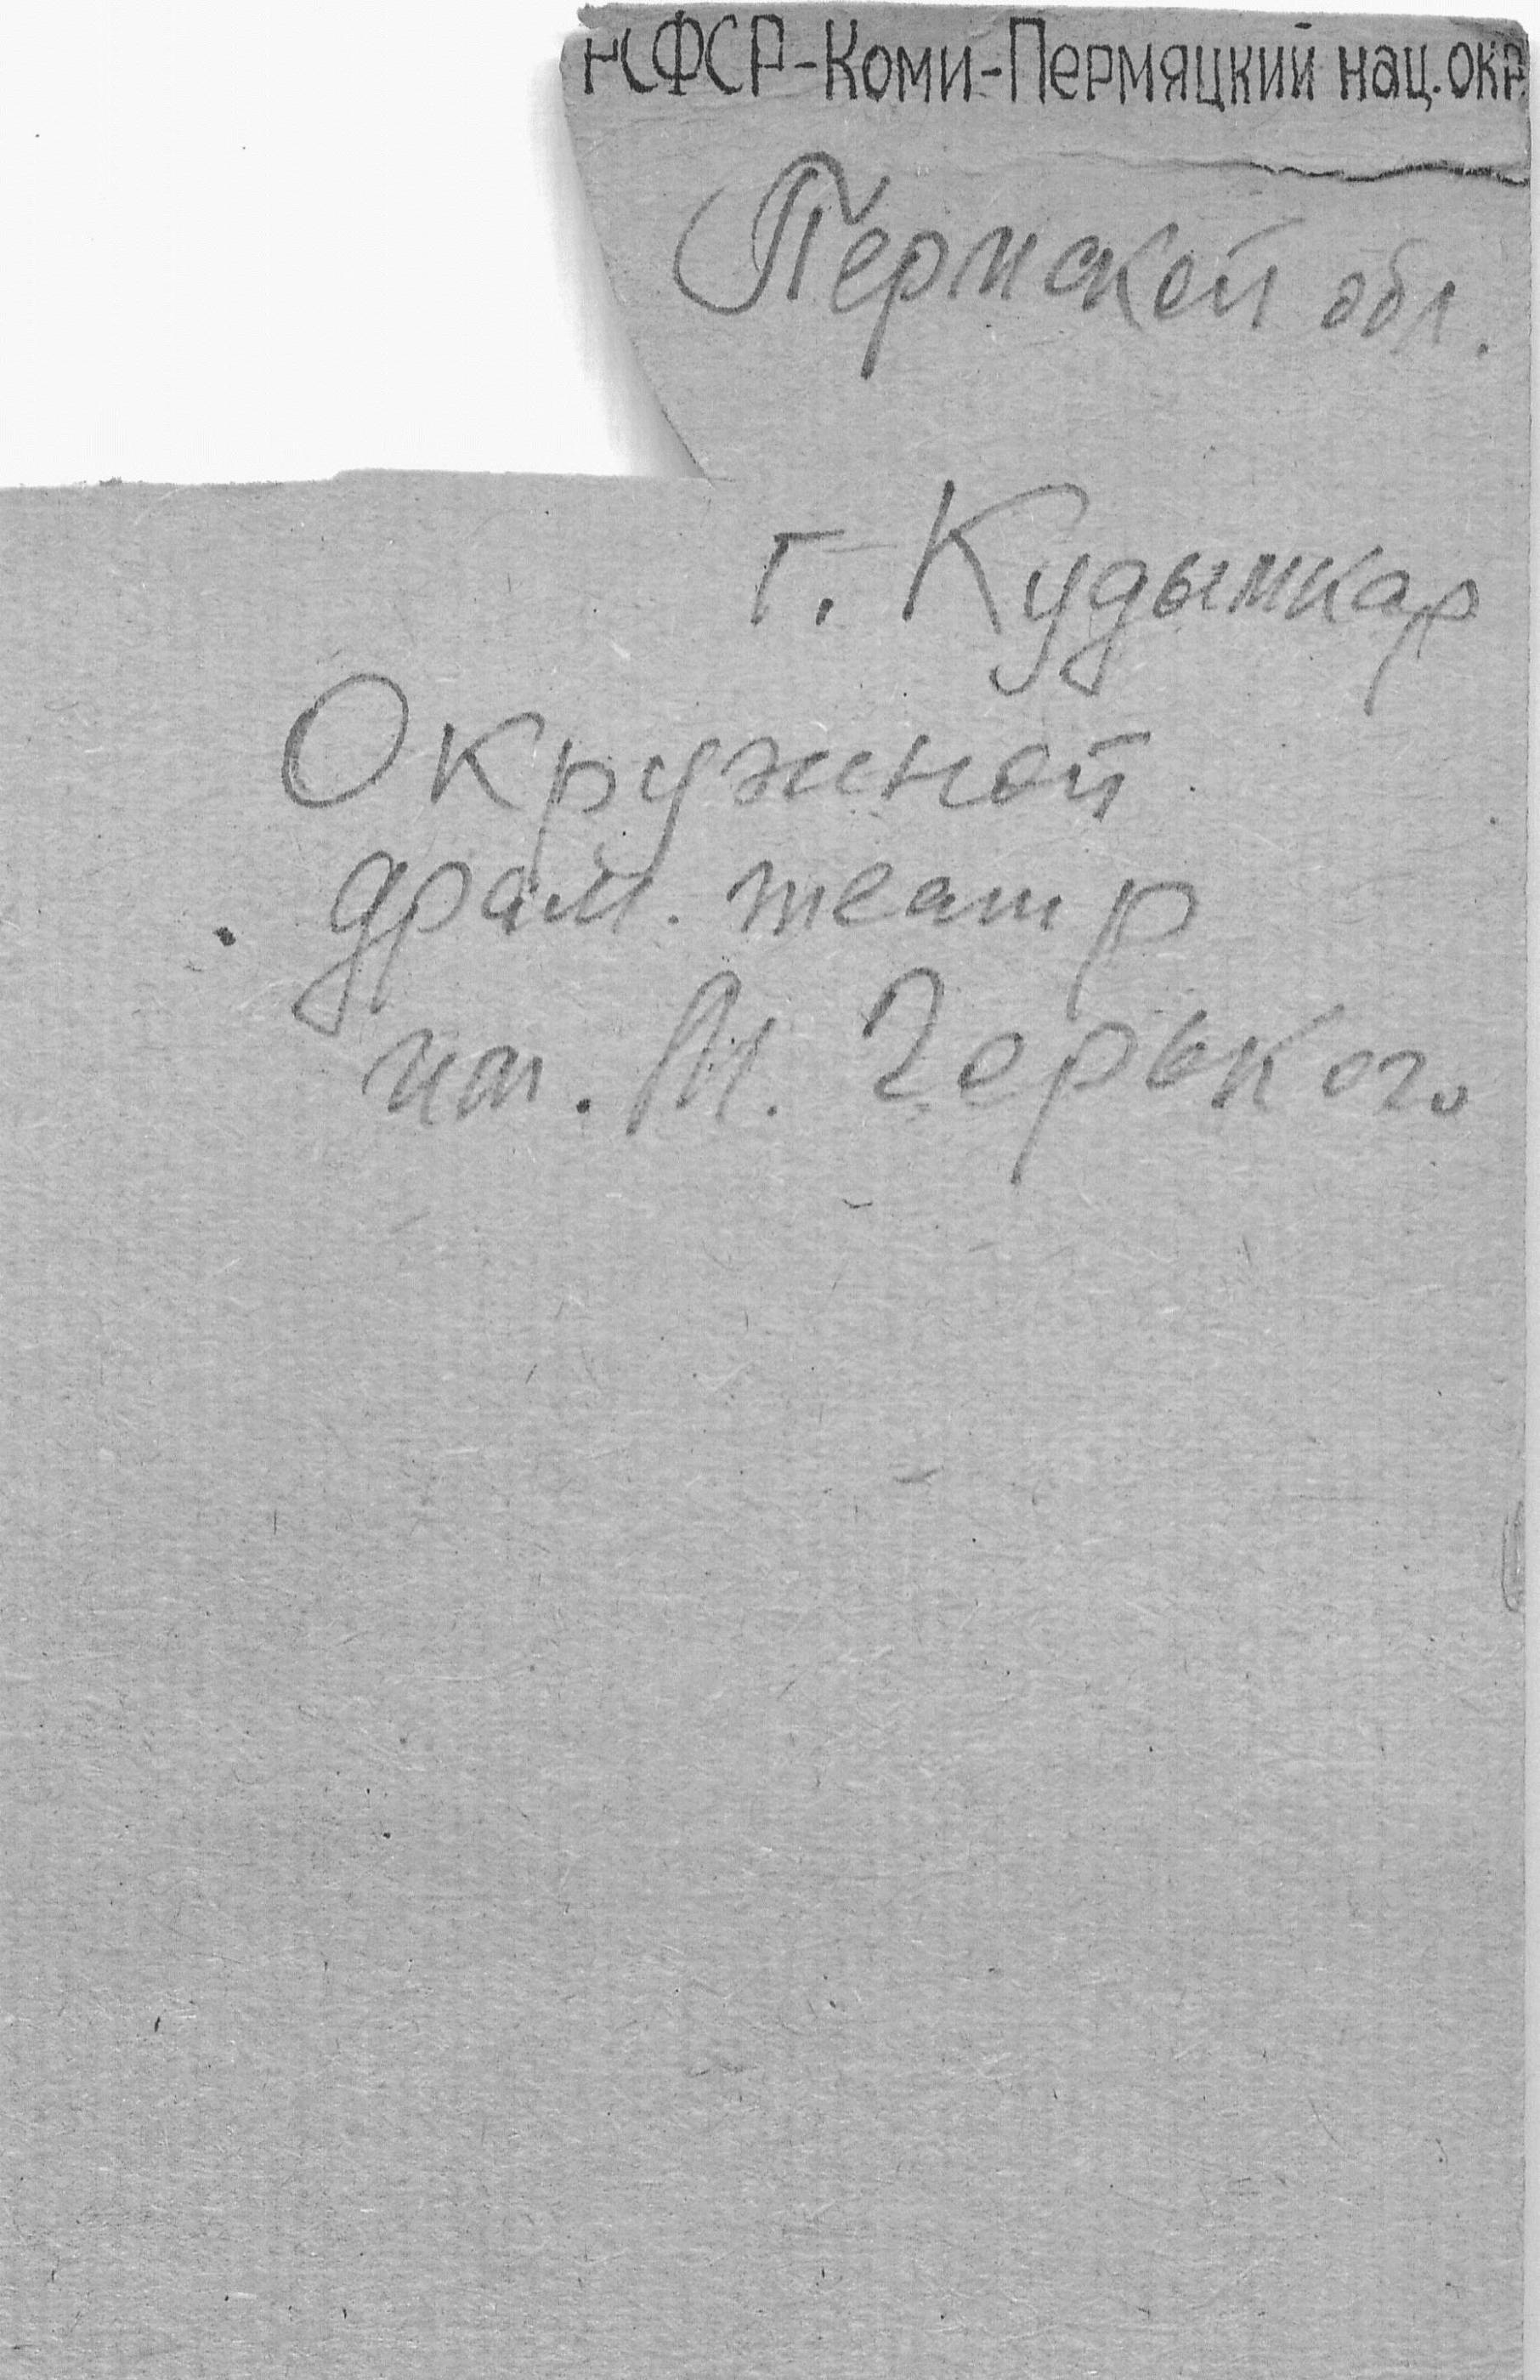 РСФСР-Коми-Пермяцкий нац.окр.
Пермской обл.
г. Кудымкар
Окружной
драм. театр
им. М. Горького